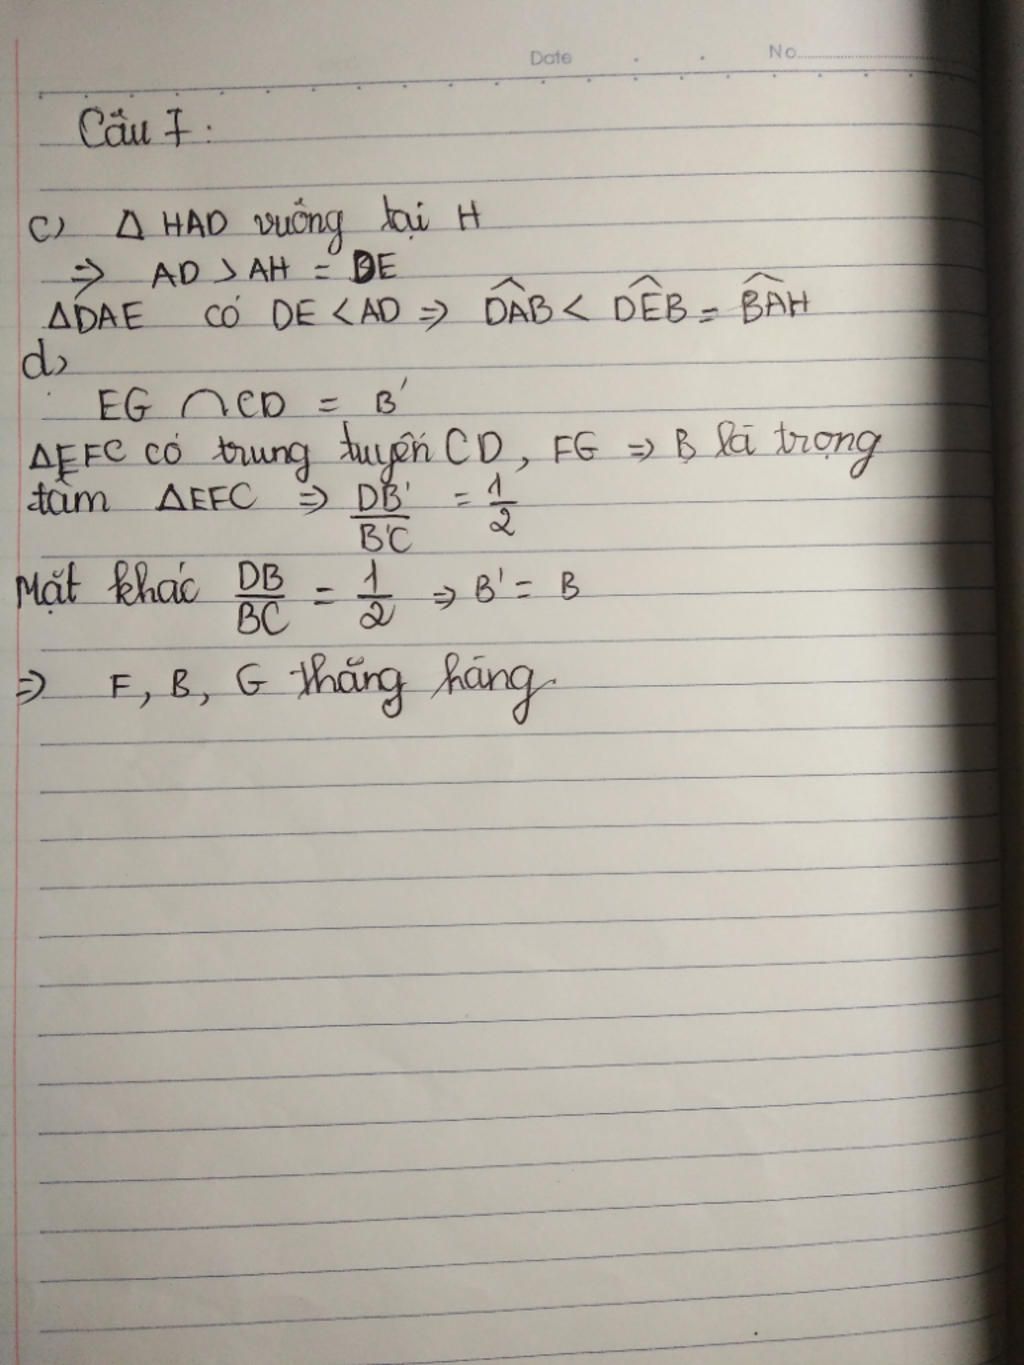 Date No
Câu 7:
c) Δ HAD vuông tại H
⇒ AD > AH = DE
ΔDAE có DE < AD ⇒ \widehat{DAB} < \widehat{DEB} = \widehat{BAH}
d)
EG ∩ CD = B'
ΔEFC có trung tuyến CD, FG ⇒ B là trọng
tâm ΔEFC ⇒ DB'/B'C = 1/2
Mặt khác DB/BC = 1/2 ⇒ B' = B
⇒ F, B, G thẳng hàng.